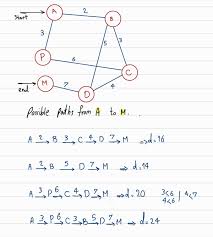 start
A
2
B
3
5
3
P
6
C
M
7
D
4
end
Possible paths from A to M...
A 2→ B 3→ C 4→ D 7→ M ⇒ d=16
A 2→ B 5→ D 7→ M ⇒ d=14
A 3→ P 6→ C 4→ D 7→ M ⇒ d=20
A 3→ P 6→ C 3→ B 5→ D 7→ M ⇒ d=24